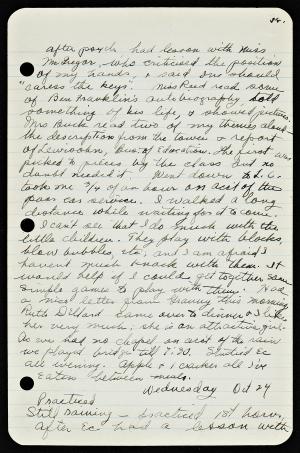 34.
after psych had lesson with Miss
McGregor, who criticised the position
of my hands, & said one should
"caress the keys". Miss Reed read some
of Ben Franklin's autobiography told
something of his life, & showed pictures.
Mrs Buck read two of my themes aloud -
the description from the tower & report
of Lewisohn, Bus. of Education. The first was
picked to pieces by the class and no
doubt needed it. Went down to S. C.
took me 3/4 of an hour on acct of the
poor car service. I walked a long
distance while waiting for it to come.
I can't see that I do much with the
little children. They play with blocks,
blow bubbles, etc, and I am afraid I
haven't much knack with them. It
would help if I could get together some
simple games to play with them. Had
a nice letter from Granny this morning
Ruth Dillard came over to dinner & I like
her very much; she is an attractive girl.
As we had no chapel on acct of the rain
we played bridge till 7:30. Studied Ec
all evening. Apple & 1 cracker all I've
eaten between meals.
Wednesday Oct 24
Practiced
Still raining - practiced 1st hour,
After Ec had a lesson with